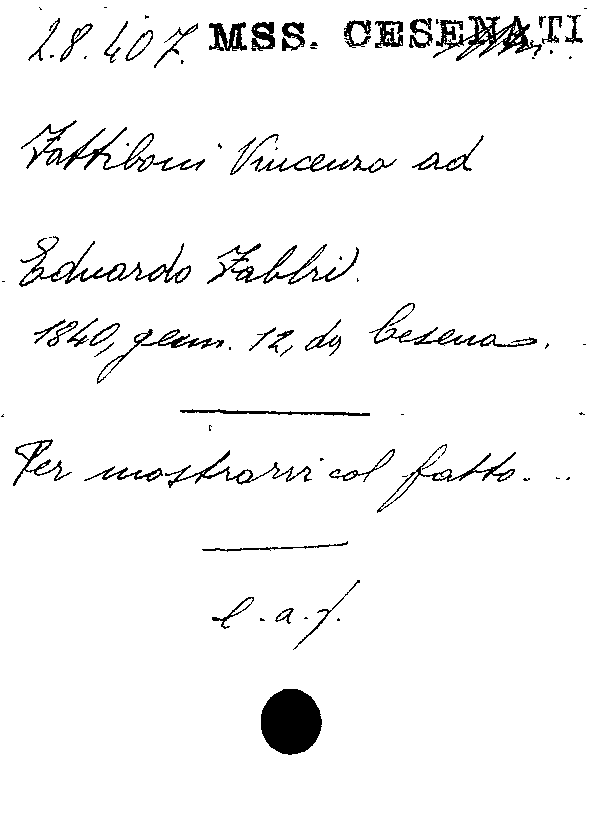 28.407. MSS. CESENATI
Fattiboni Vincenzo ad
Eduardo Fabbri.
1840, genn. 12, da Cesena.
Per mostrarvi col fatto...
l.a.f.